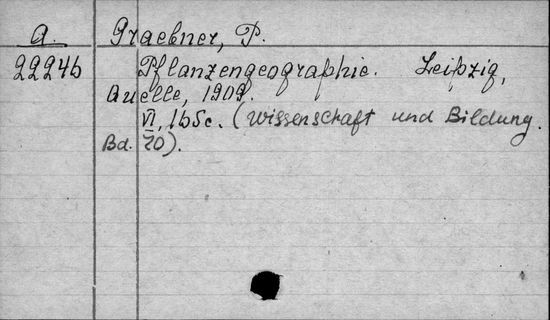 A. Graebner, P.
22246 Pflanzengeographie. Leipzig,
Quelle, 1909.
VI, 165c. (Wissenschaft und Bildung.
Bd. 70).